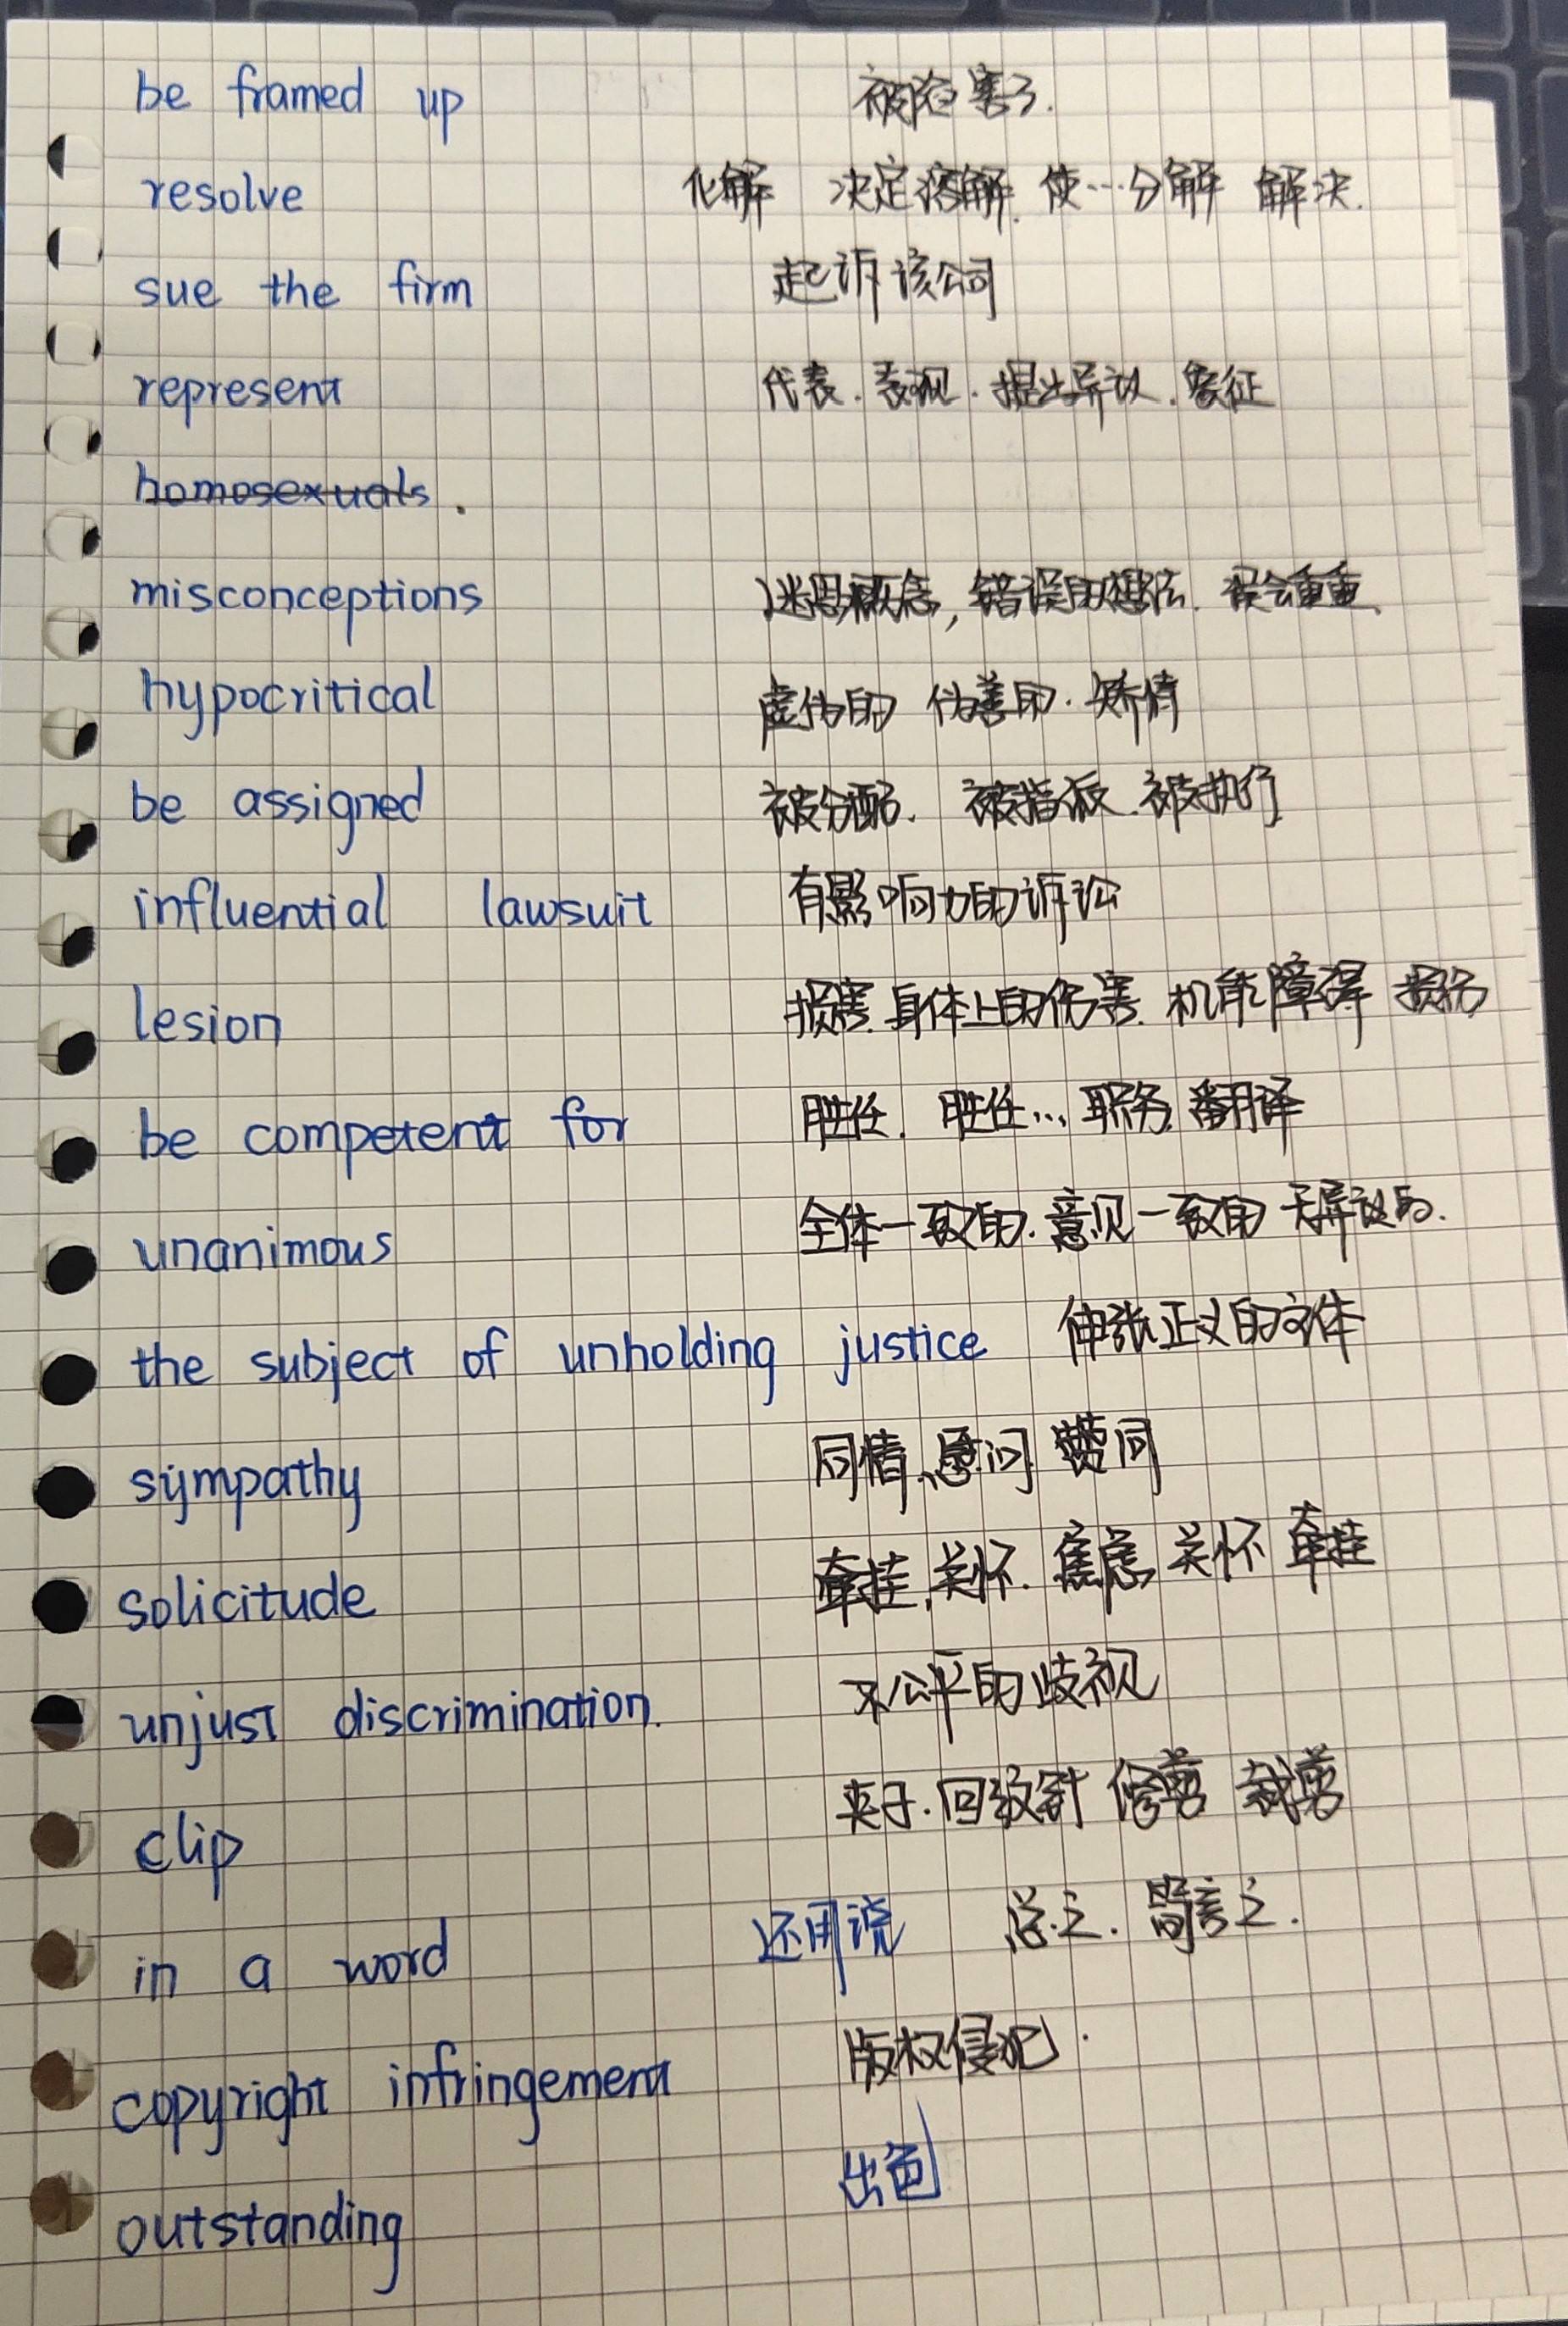 be framed up 被陷害了.
resolve 化解 决定溶解. 使…分解 解决.
sue the firm 起诉该公司
represent 代表. 表现. 提出异议. 象征
homosexuals.
misconceptions 迷思概念, 错误的想法. 误会重重.
hypocritical 虚伪的 伪善的. 矫情
be assigned 被分配. 被指派. 被执行
influential lawsuit 有影响力的诉讼
lesion 损害. 身体上的伤害. 机能障碍 损伤
be competent for 胜任. 胜任… 职务. 翻译
unanimous 全体一致的. 意见一致的 无异议的.
the subject of unholding justice 伸张正义的文体
sympathy 同情. 慰问. 赞同
solicitude 牵挂. 关怀. 焦虑. 关怀 牵挂
unjust discrimination. 不公平的歧视
clip 夹子. 回纹针 修剪 裁剪
in a word 还用说 总之. 简言之.
copyright infringement 版权侵犯.
outstanding 出色